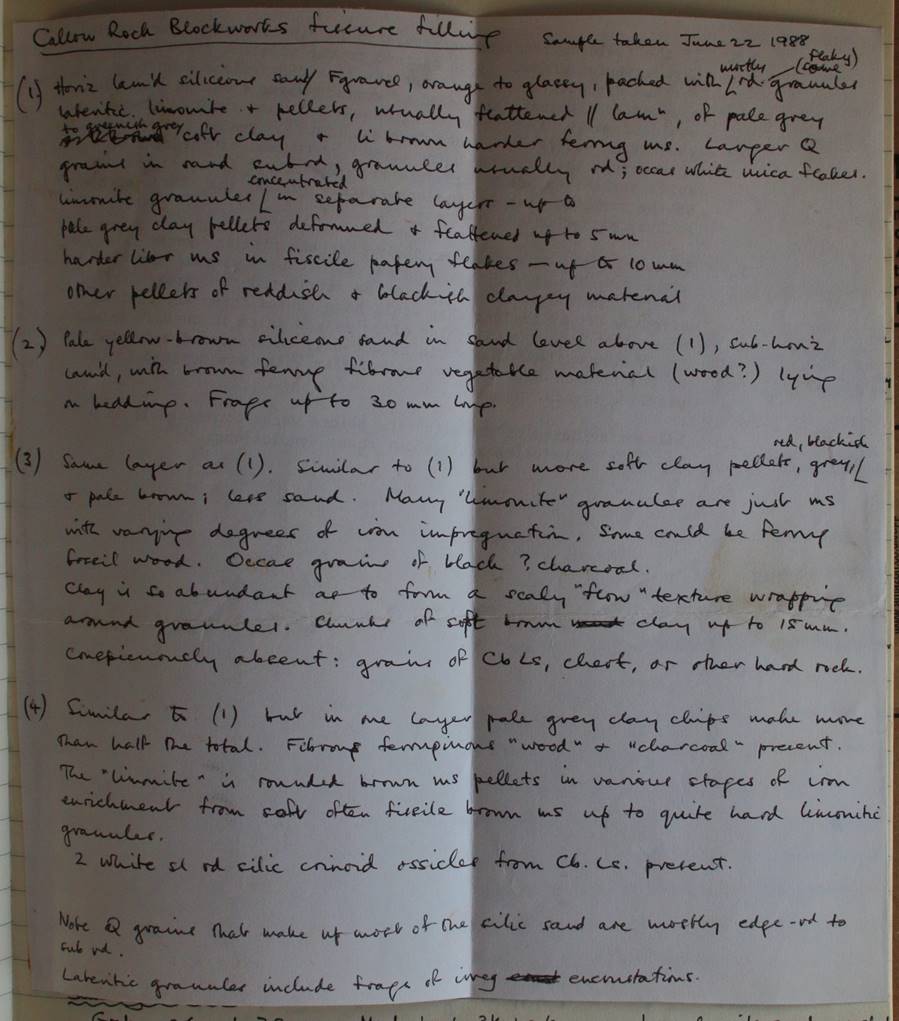 Callow Rock Blockworks fissure filling Sample taken June 22 1988
(1) Horiz lam'd siliceous sand/Fgravel, orange to glassy, packed with mostly (some flaky) rd. granules
lateritic limonite + pellets, usually flattened // lamn, of pale grey
to greenish grey soft clay + li brown harder ferrug ms. Larger Q
grains in sand subrd, granules usually rd; occas white mica flakes.
limonite granules concentrated in separate layers - up to
pale grey clay pellets deformed + flattened up to 5 mm
harder li br ms in fissile papery flakes - up to 10 mm
Other pellets of reddish + blackish clayey material
(2) Pale yellow-brown siliceous sand in sand level above (1), sub-horiz
lam'd, with brown ferrug fibrous vegetable material (wood?) lying
on bedding. Frags up to 30 mm long.
(3) Same layer as (1). Similar to (1) but more soft clay pellets, grey, red, blackish
+ pale brown; less sand. Many "limonite" granules are just ms
with varying degrees of iron impregnation. Some could be ferrug
fossil wood. Occas grains of black ?charcoal.
Clay is so abundant as to form a scaly "flow" texture wrapping
around granules. Chunks of soft brown clay up to 15 mm.
Conspicuously absent: grains of Cb Ls, chert, or other hard rock.
(4) Similar to (1) but in one layer pale grey clay chips make more
than half the total. Fibrous ferruginous "wood" + "charcoal" present.
The "limonite" is rounded brown ms pellets in various stages of iron
enrichment from soft often fissile brown ms up to quite hard limonitic
granules.
2 white sl rd silic crinoid ossicles from Cb. Ls. present.
Note Q grains that make up most of the silic sand are mostly edge-rd to
sub rd.
Lateritic granules include frags of irreg encrustations.